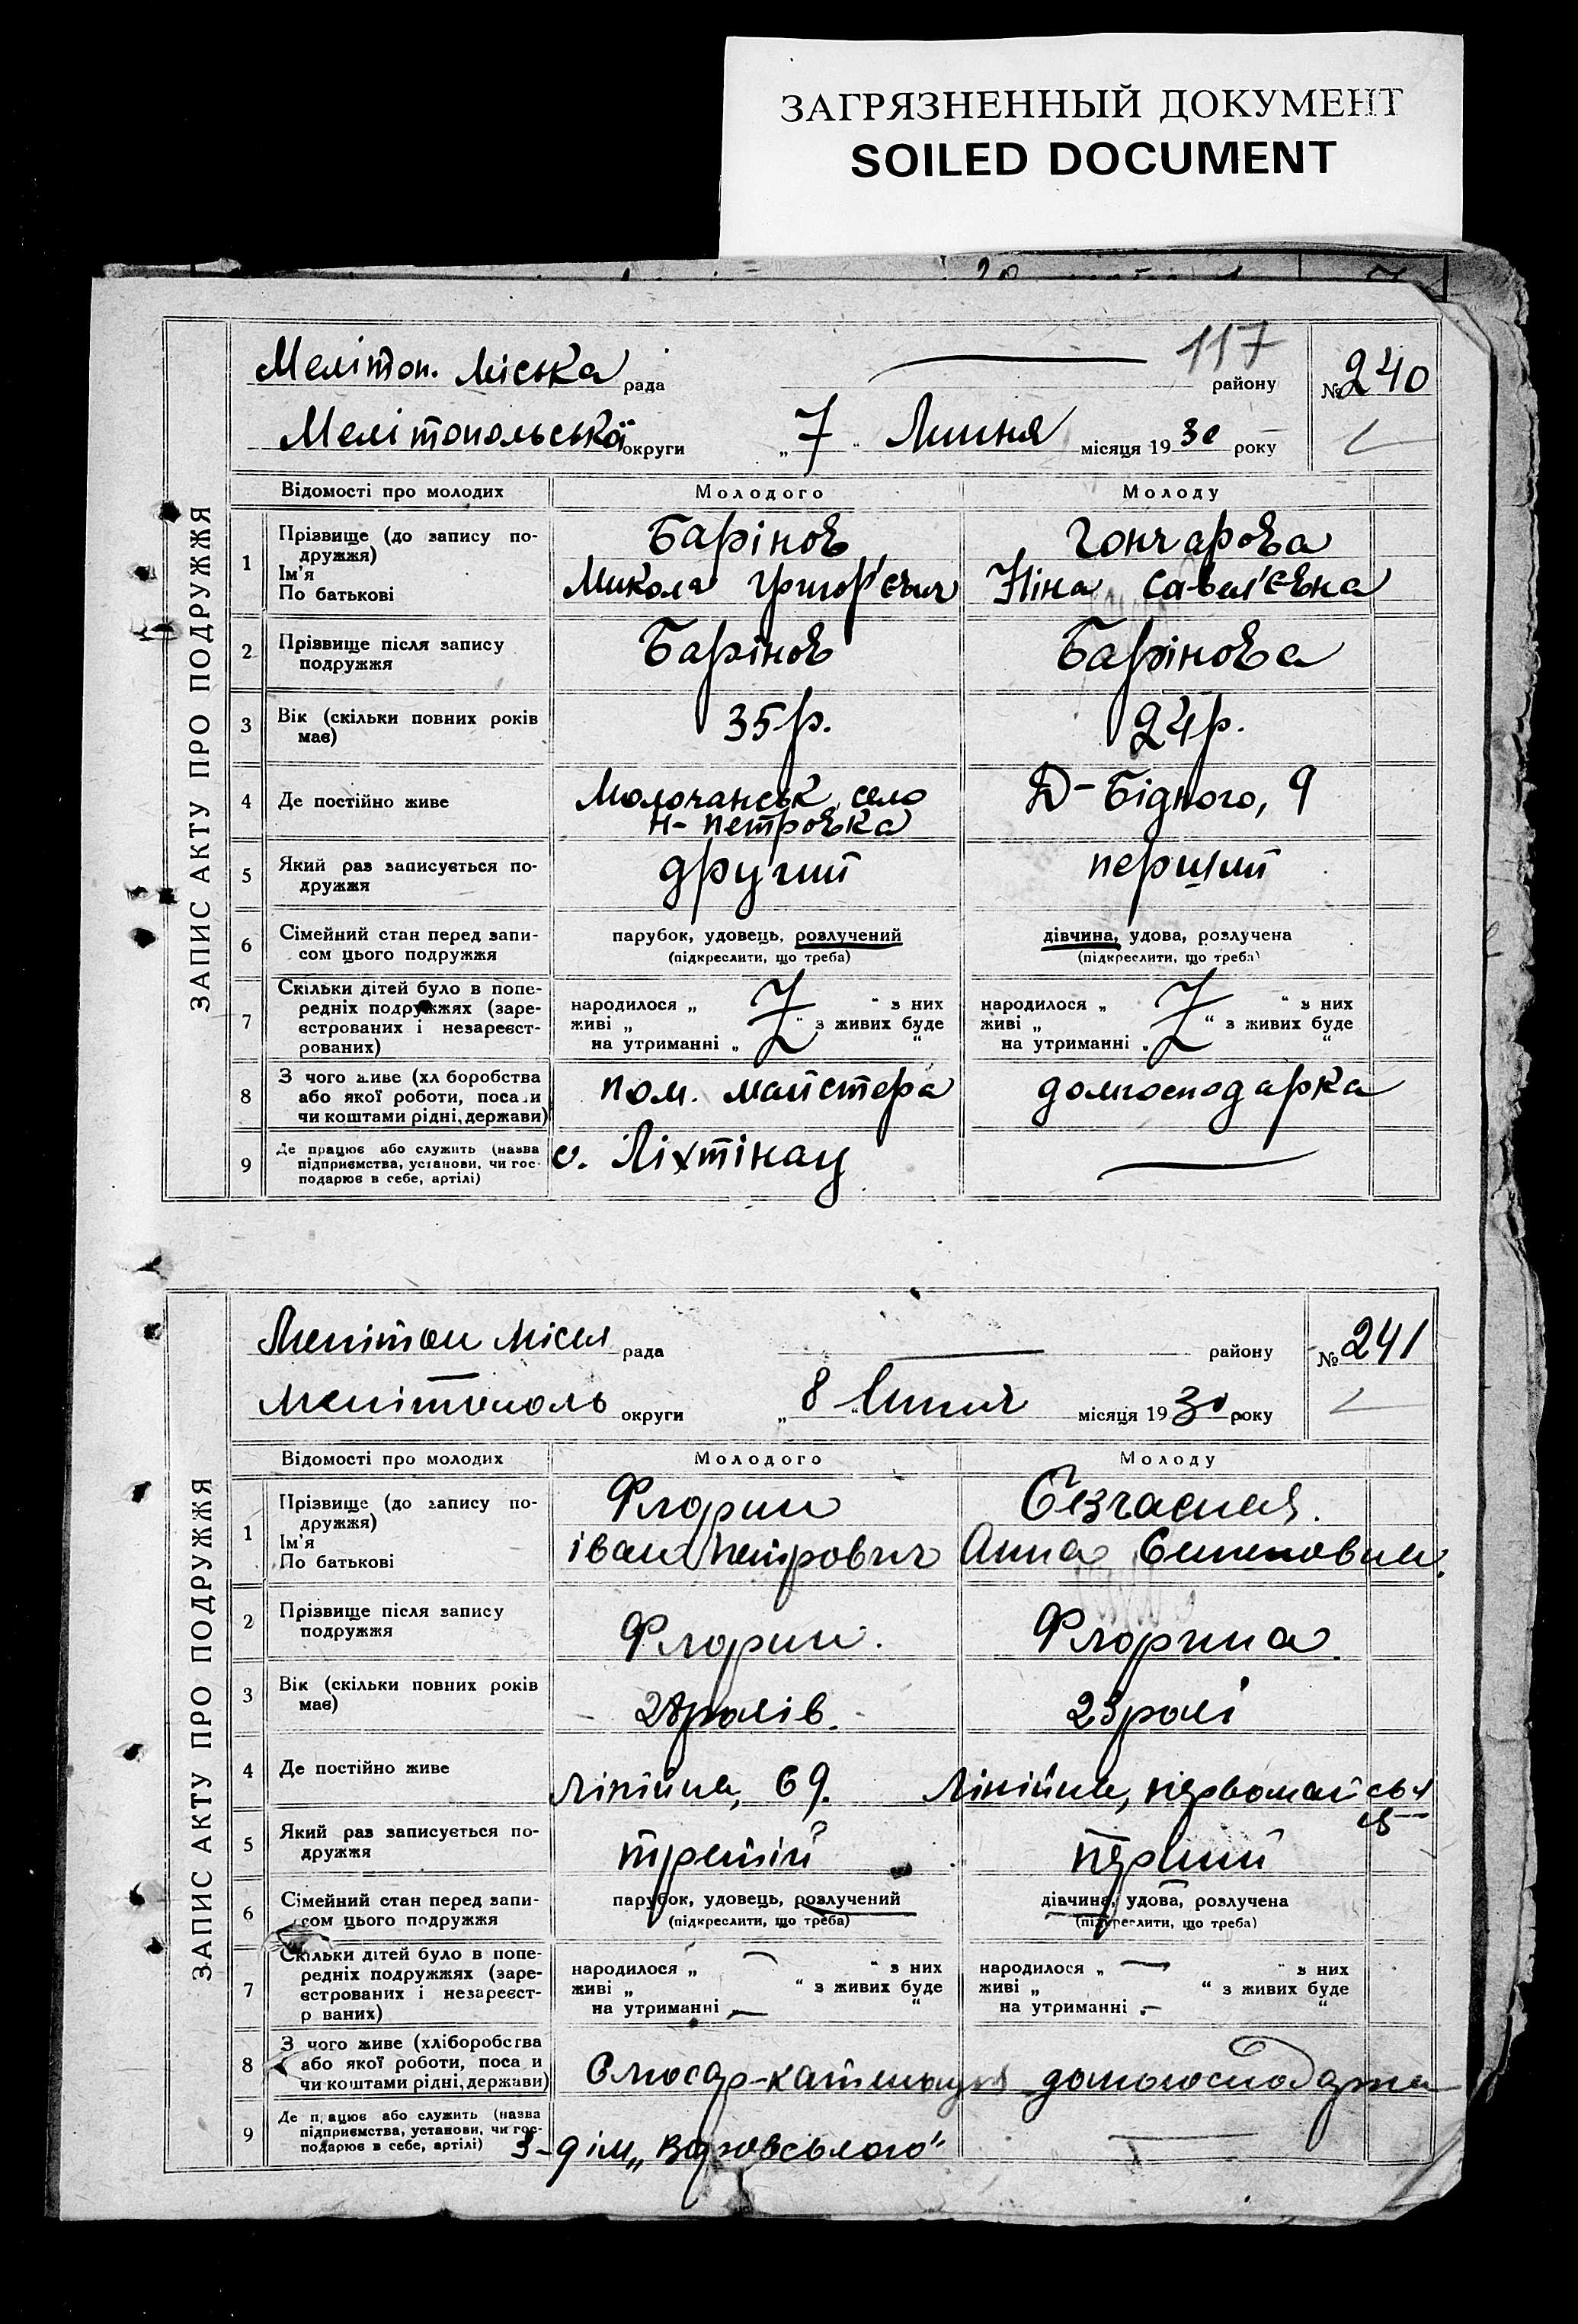 ЗАГРЯЗНЕННЫЙ ДОКУМЕНТ
SOILED DOCUMENT
117
ЗАПИС АКТУ ПРО ПОДРУЖЖЯ
Мелітоп. міська рада району № 240
Мелітопольської округи „7“ Липня місяця 1930 року
Відомості про молодих Молодого Молоду
1 Прізвище (до запису по-
дружжя)
Ім'я
По батькові
Барінов Гончарова
Микола Григор'євич Ніна Савел'євна
2 Прізвище після запису
подружжя
Барінов Барінова
3 Вік (скільки повних років
має)
35 р. 24 р.
4 Де постійно живе
Молочанськ село
Н-Петровка
Д-Бідного, 9
5 Який раз записується по-
дружжя
другий перший
6 Сімейний стан перед запи-
сом цього подружжя
парубок, удовець, розлучений
(підкреслити, що треба)
дівчина, удова, розлучена
(підкреслити, що треба)
7 Скільки дітей було в попе-
редніх подружжях (заре-
єстрованих і незареєст-
рованих)
народилося „ “ з них
живі „ “ з живих буде
на утриманні „ “
народилося „ “ з них
живі „ “ з живих буде
на утриманні „ “
8 З чого живе (хл боробства
або якої роботи, поса и
чи коштами рідні, держави)
пом. майстера домгосподарка
9 Де працює або служить (назва
підприємства, установи, чи гос-
подарює в себе, артілі)
с. Ліхтінау
ЗАПИС АКТУ ПРО ПОДРУЖЖЯ
Мелітоп міськ рада району № 241
Мелітополь округи „8“ Липня місяця 1930 року
Відомості про молодих Молодого Молоду
1 Прізвище (до запису по-
дружжя)
Ім'я
По батькові
Флорин Безчасная.
Іван Петрович Анна Семеновна.
2 Прізвище після запису
подружжя
Флорин. Флорина.
3 Вік (скільки повних років
має)
28 років. 23 рокі
4 Де постійно живе
Лінійна, 69. Лінійна, первомайськ
5 Який раз записується по-
дружжя
третій перший
6 Сімейний стан перед запи-
сом цього подружжя
парубок, удовець, розлучений
(підкреслити, що треба)
дівчина, удова, розлучена
(підкреслити, що треба)
7 Скільки дітей було в попе-
редніх подружжях (заре-
єстрованих і незареєст-
р ваних)
народилося „ “ з них
живі „ “ з живих буде
на утриманні „ “
народилося „ “ з них
живі „ “ з живих буде
на утриманні „ “
8 З чого живе (хліборобства
або якої роботи, поса и
чи коштами рідні, держави)
Слюсар- домогосподарка
9 Де п ацює або служить (назва
підприємства, установи, чи гос-
подарює в себе, артілі)
З-д ім „Воровського“